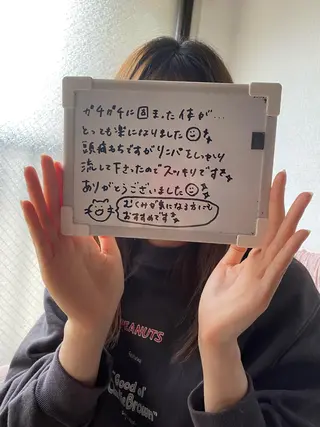 ガチガチに固まった体が…
とっても楽になりました
頭痛もちですがリンパをしっかり
流して下さったのでスッキリです
ありがとうございました
むくみが気になる方にも
おすすめです
PEANUTS
"Good ol'
Charlie Brown"